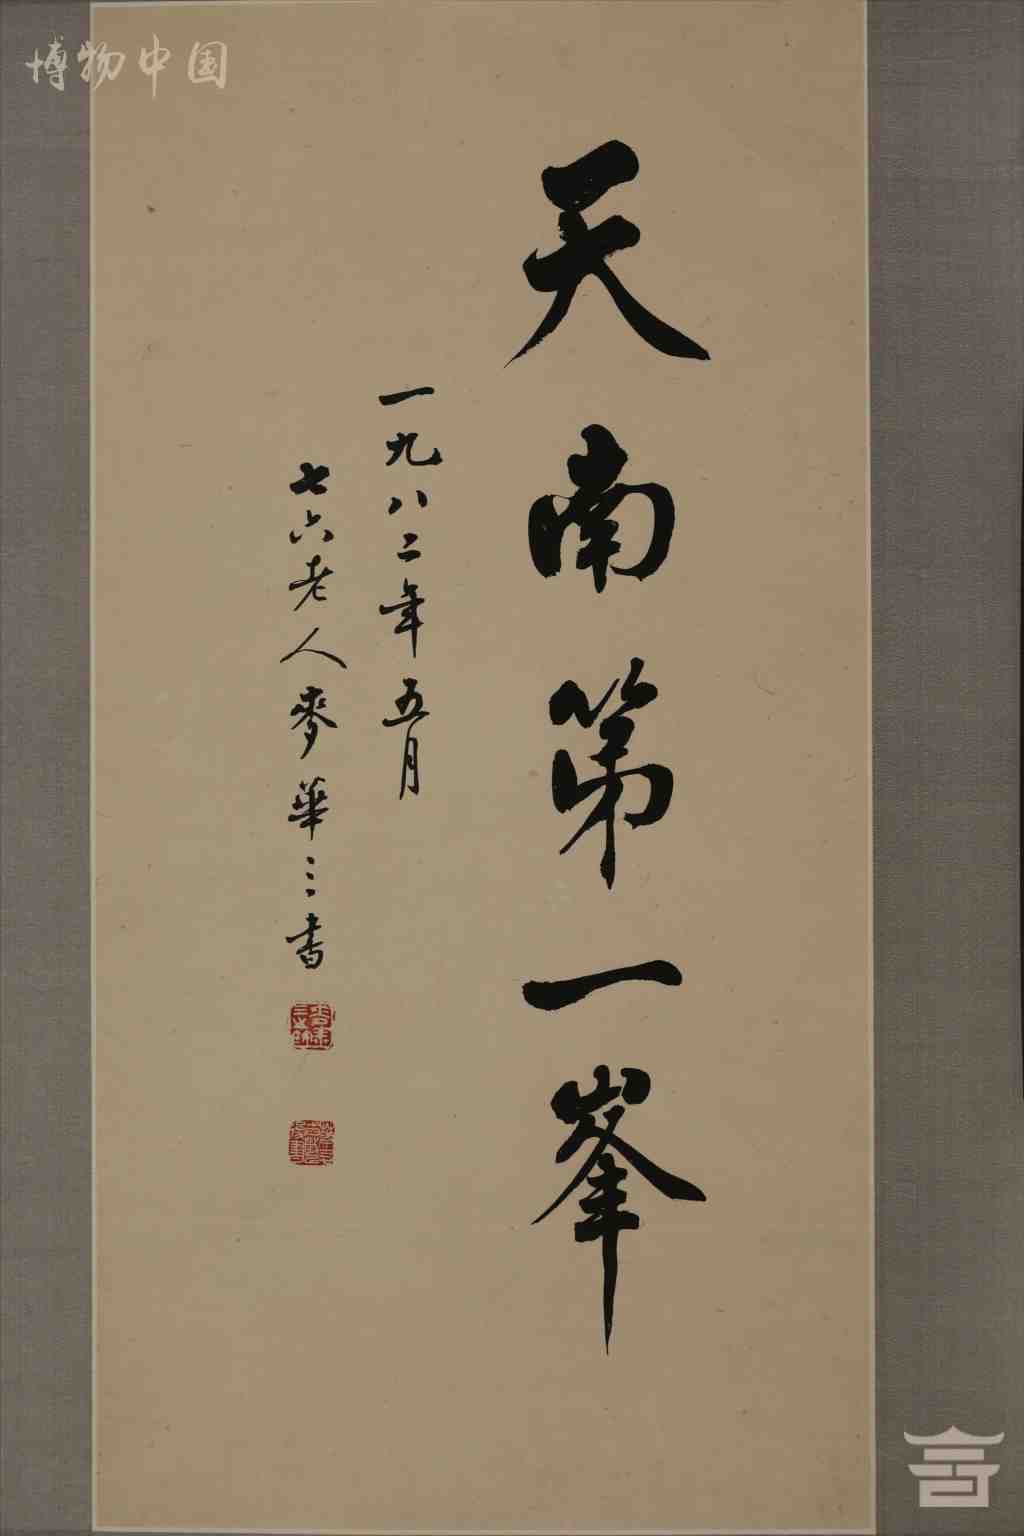 博物中国
天南第一峯
一九八二年五月
七六老人麥華三書